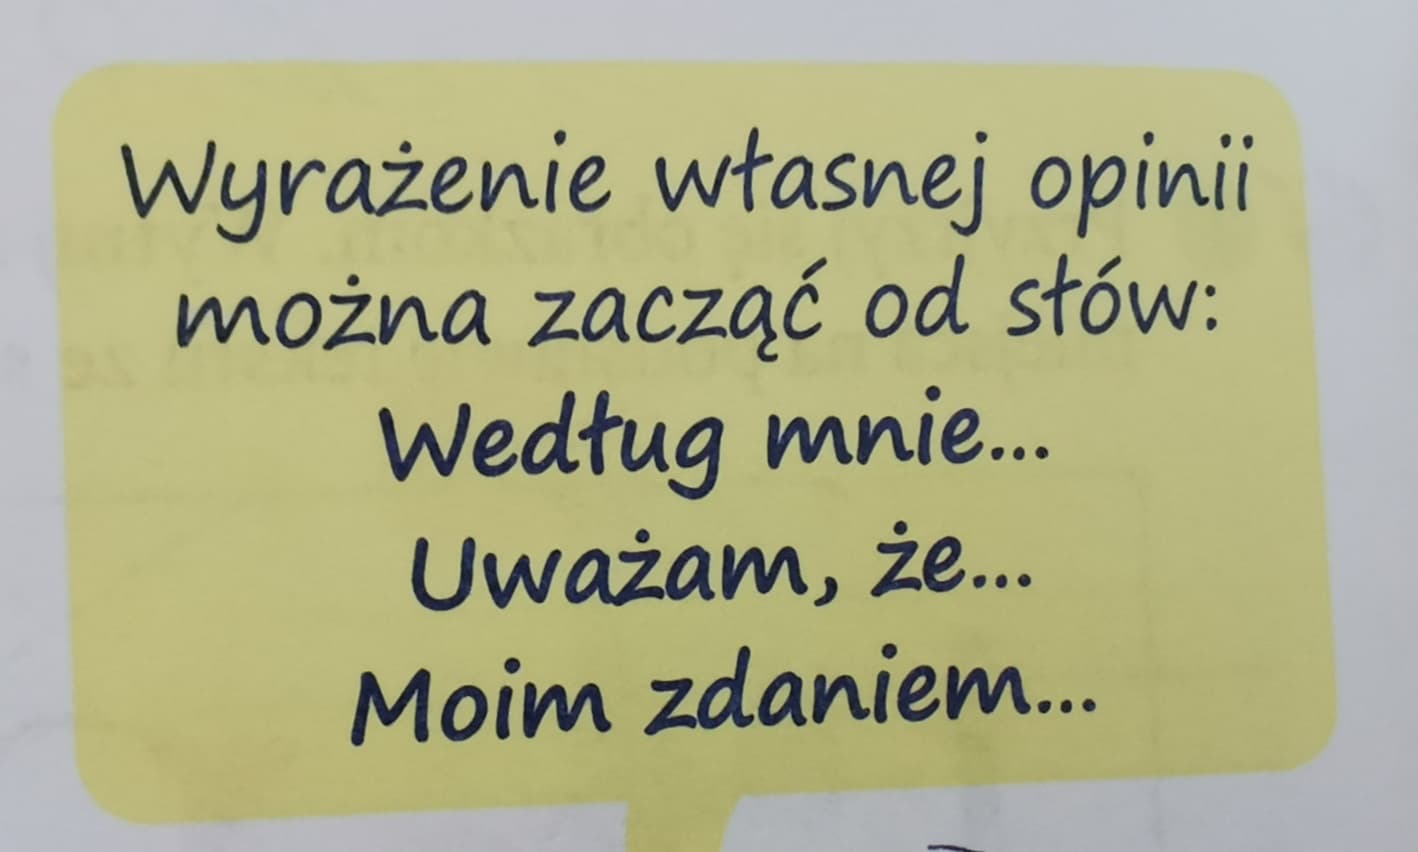 Wyrażenie własnej opinii
można zacząć od słów:
Według mnie...
Uważam, że...
Moim zdaniem...